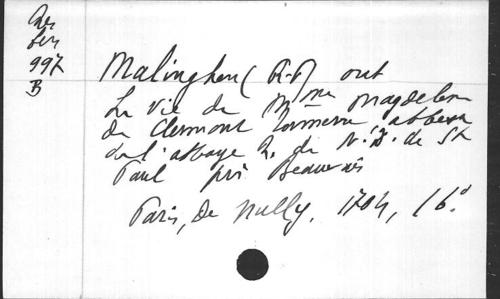 997
B
Malinghen (R. P) out
La vie de Mme Magdelene
de Clermont Tonnerre, abbesse
de l'abbaye R. de N. D. de St
Paul près Beauvais
Paris, de Nully, 1704, 16°